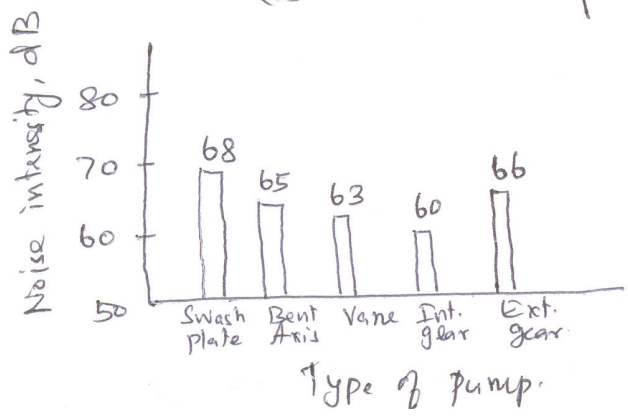 Noise intensity, dB
80
70
60
50
68
65
63
60
66
Swash plate
Bent Axis
Vane
Int. gear
Ext. gear.
Type of pump.